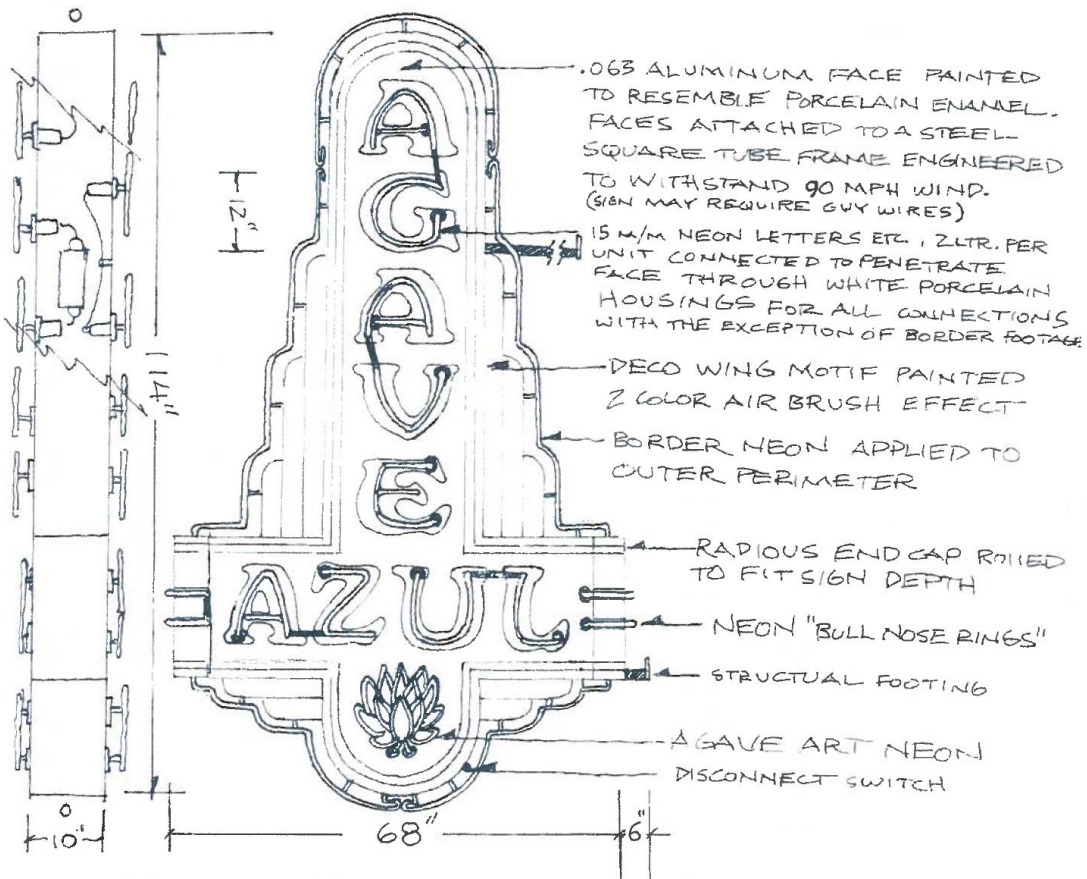 .063 ALUMINUM FACE PAINTED
TO RESEMBLE PORCELAIN ENAMEL.
FACES ATTACHED TO A STEEL
SQUARE TUBE FRAME ENGINEERED
TO WITHSTAND 90 MPH WIND.
(SIGN MAY REQUIRE GUY WIRES)
15 M/M NEON LETTERS ETC., 2 LTR. PER
UNIT CONNECTED TO PENETRATE
FACE THROUGH WHITE PORCELAIN
HOUSINGS FOR ALL CONNECTIONS
WITH THE EXCEPTION OF BORDER FOOTAGE
DECO WING MOTIF PAINTED
2 COLOR AIR BRUSH EFFECT
BORDER NEON APPLIED TO
OUTER PERIMETER
RADIOUS END CAP ROLLED
TO FIT SIGN DEPTH
NEON "BULL NOSE RINGS"
STRUCTUAL FOOTING
AGAVE ART NEON
DISCONNECT SWITCH
A
G
A
V
E
AZUL
12"
114"
10"
68"
6"